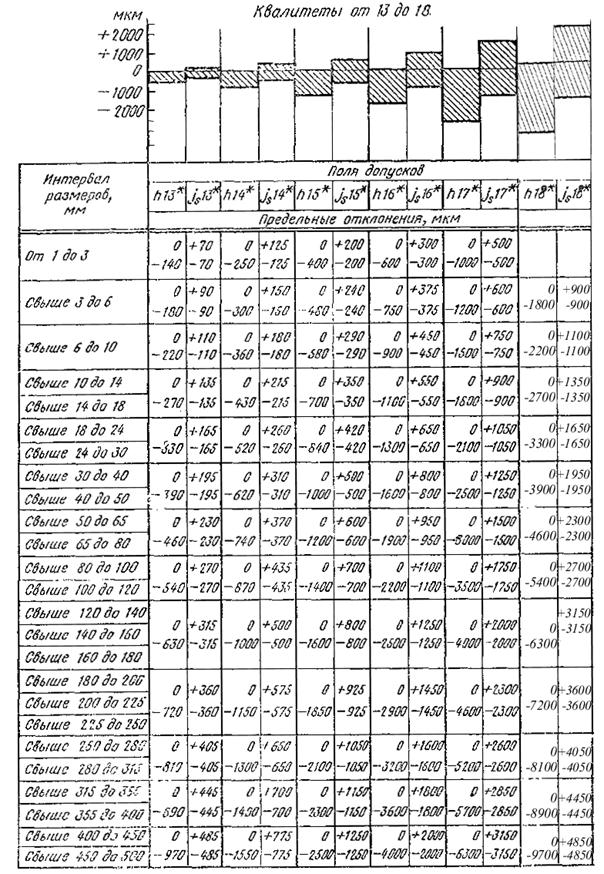 Квалитеты от 13 до 18.
мкм
+2000
+1000
0
-1000
-2000
Интервал размеров, мм
Поля допусков
h13* js13* h14* js14* h15* js15* h16* js16* h17* js17* h18* js18*
Предельные отклонения, мкм
От 1 до 3
0 +70 0 +125 0 +200 0 +300 0 +500
-140 -70 -250 -125 -400 -200 -600 -300 -1000 -500
Свыше 3 до 6
0 +90 0 +150 0 +240 0 +375 0 +600 0 +900
-180 -90 -300 -150 -480 -240 -750 -375 -1200 -600 -1800 -900
Свыше 6 до 10
0 +110 0 +180 0 +290 0 +450 0 +750 0 +1100
-220 -110 -360 -180 -580 -290 -900 -450 -1500 -750 -2200 -1100
Свыше 10 до 14
0 +135 0 +215 0 +350 0 +550 0 +900 0 +1350
Свыше 14 до 18
-270 -135 -430 -215 -700 -350 -1100 -550 -1800 -900 -2700 -1350
Свыше 18 до 24
0 +165 0 +260 0 +420 0 +650 0 +1050 0 +1650
Свыше 24 до 30
-330 -165 -520 -260 -840 -420 -1300 -650 -2100 -1050 -3300 -1650
Свыше 30 до 40
0 +195 0 +310 0 +500 0 +800 0 +1250 0 +1950
Свыше 40 до 50
-390 -195 -620 -310 -1000 -500 -1600 -800 -2500 -1250 -3900 -1950
Свыше 50 до 65
0 +230 0 +370 0 +600 0 +950 0 +1500 0 +2300
Свыше 65 до 80
-460 -230 -740 -370 -1200 -600 -1900 -950 -3000 -1500 -4600 -2300
Свыше 80 до 100
0 +270 0 +435 0 +700 0 +1100 0 +1750 0 +2700
Свыше 100 до 120
-540 -270 -870 -435 -1400 -700 -2200 -1100 -3500 -1750 -5400 -2700
Свыше 120 до 140
Свыше 140 до 160
Свыше 160 до 180
0 +315 0 +500 0 +800 0 +1250 0 +2000 0 +3150
-630 -315 -1000 -500 -1600 -800 -2500 -1250 -4000 -2000 -6300 -3150
Свыше 180 до 200
Свыше 200 до 225
Свыше 225 до 250
0 +360 0 +575 0 +925 0 +1450 0 +2300 0 +3600
-720 -360 -1150 -575 -1850 -925 -2900 -1450 -4600 -2300 -7200 -3600
Свыше 250 до 280
0 +405 0 +650 0 +1050 0 +1600 0 +2600 0 +4050
Свыше 280 до 315
-810 -405 -1300 -650 -2100 -1050 -3200 -1600 -5200 -2600 -8100 -4050
Свыше 315 до 355
0 +445 0 +700 0 +1150 0 +1800 0 +2850 0 +4450
Свыше 355 до 400
-890 -445 -1400 -700 -2300 -1150 -3600 -1800 -5700 -2850 -8900 -4450
Свыше 400 до 450
0 +485 0 +775 0 +1250 0 +2000 0 +3150 0 +4850
Свыше 450 до 500
-970 -485 -1550 -775 -2500 -1250 -4000 -2000 -6300 -3150 -9700 -4850